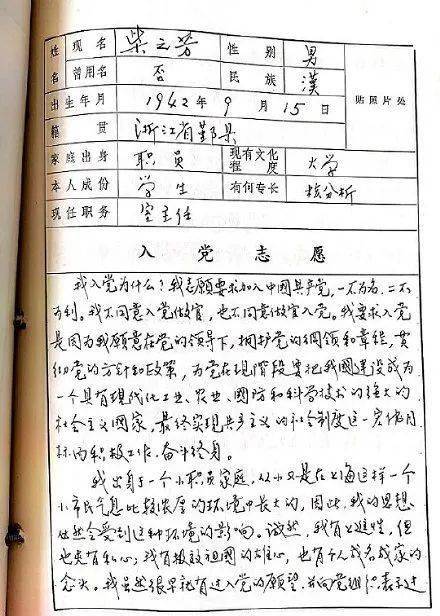 姓名 现名 柴之芳 性别 男
曾用名 否 民族 漢
贴照片处
出生年月 1942年9月15日
籍贯 浙江省鄞县
家庭出身 职员 现有文化程度 大学
本人成份 学生 有何专长 核分析
现任职务 室主任
入党志愿
我入党为什么?我志愿要求加入中國共产党,一不为名,二不
为利。我不同意入党做官,也不同意做官入党。我要求入党
是因为我愿意在党的领导下,拥护党的纲领和章程,贯
彻党的方针和政策,为党在现阶段要把我國建设成为
一个具有现代化工业、农业、國防和科学技术的强大的
社会主义國家,最终实现共产主义的社会制度这一宏伟目
标而积极工作,奋斗终身。
我出身于一个小职员家庭,从小又是在上海这样一个
小市民气息比较浓厚的环境中长大的,因此,我的思想
必然会受到这种环境的影响。诚然,我有上进性,但
也夹有私心;我有报效祖國的雄心,也有个人成名成家的
念头。我虽然很早就有过入党的愿望,并向党组织表示过